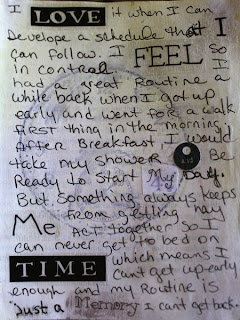 I LOVE it when I can
Develope a schedule that I
can follow. I FEEL so
in control. I
had a great Routine a
while back when I got up
early and went for a walk
first thing in the morning.
After Breakfast, I would
take my shower & Be
Ready to Start My Day.
But, Something always keeps
Me from getting my
Act together so I
can never get to bed on
TIME which means I
can't get up early
enough and my Routine is
"Just a Memory I can't get back.